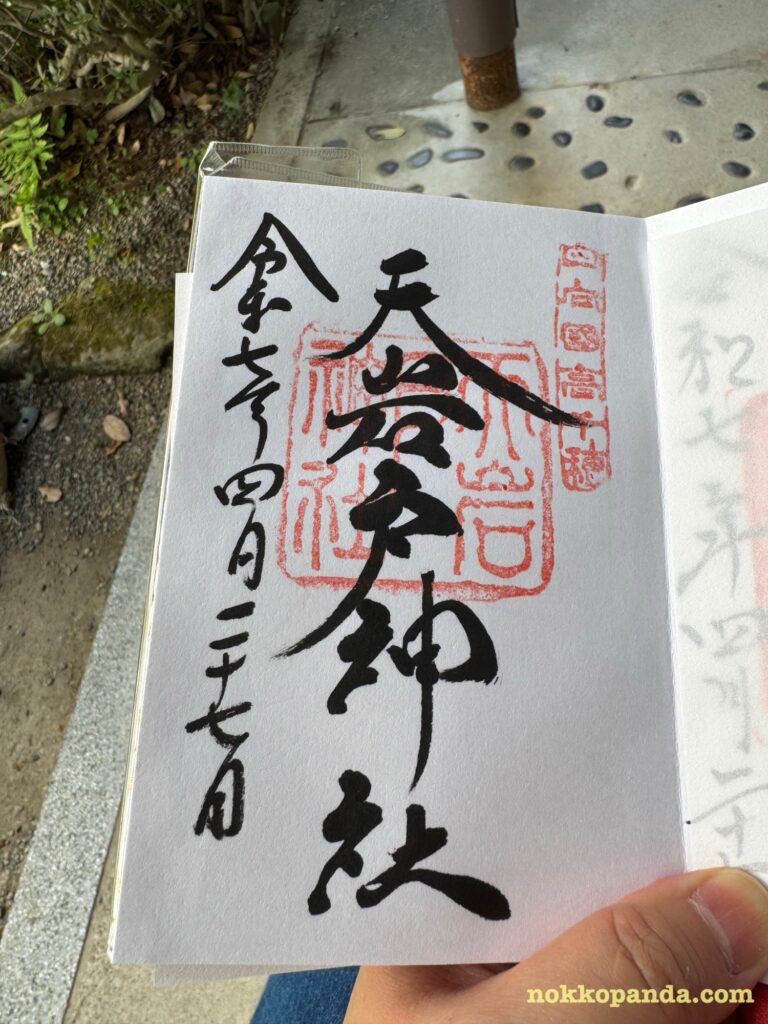 日向国高千穂
天岩戸神社
天岩
神社
令和七年四月二十七日
和七年四月二十七
nokkopanda.com